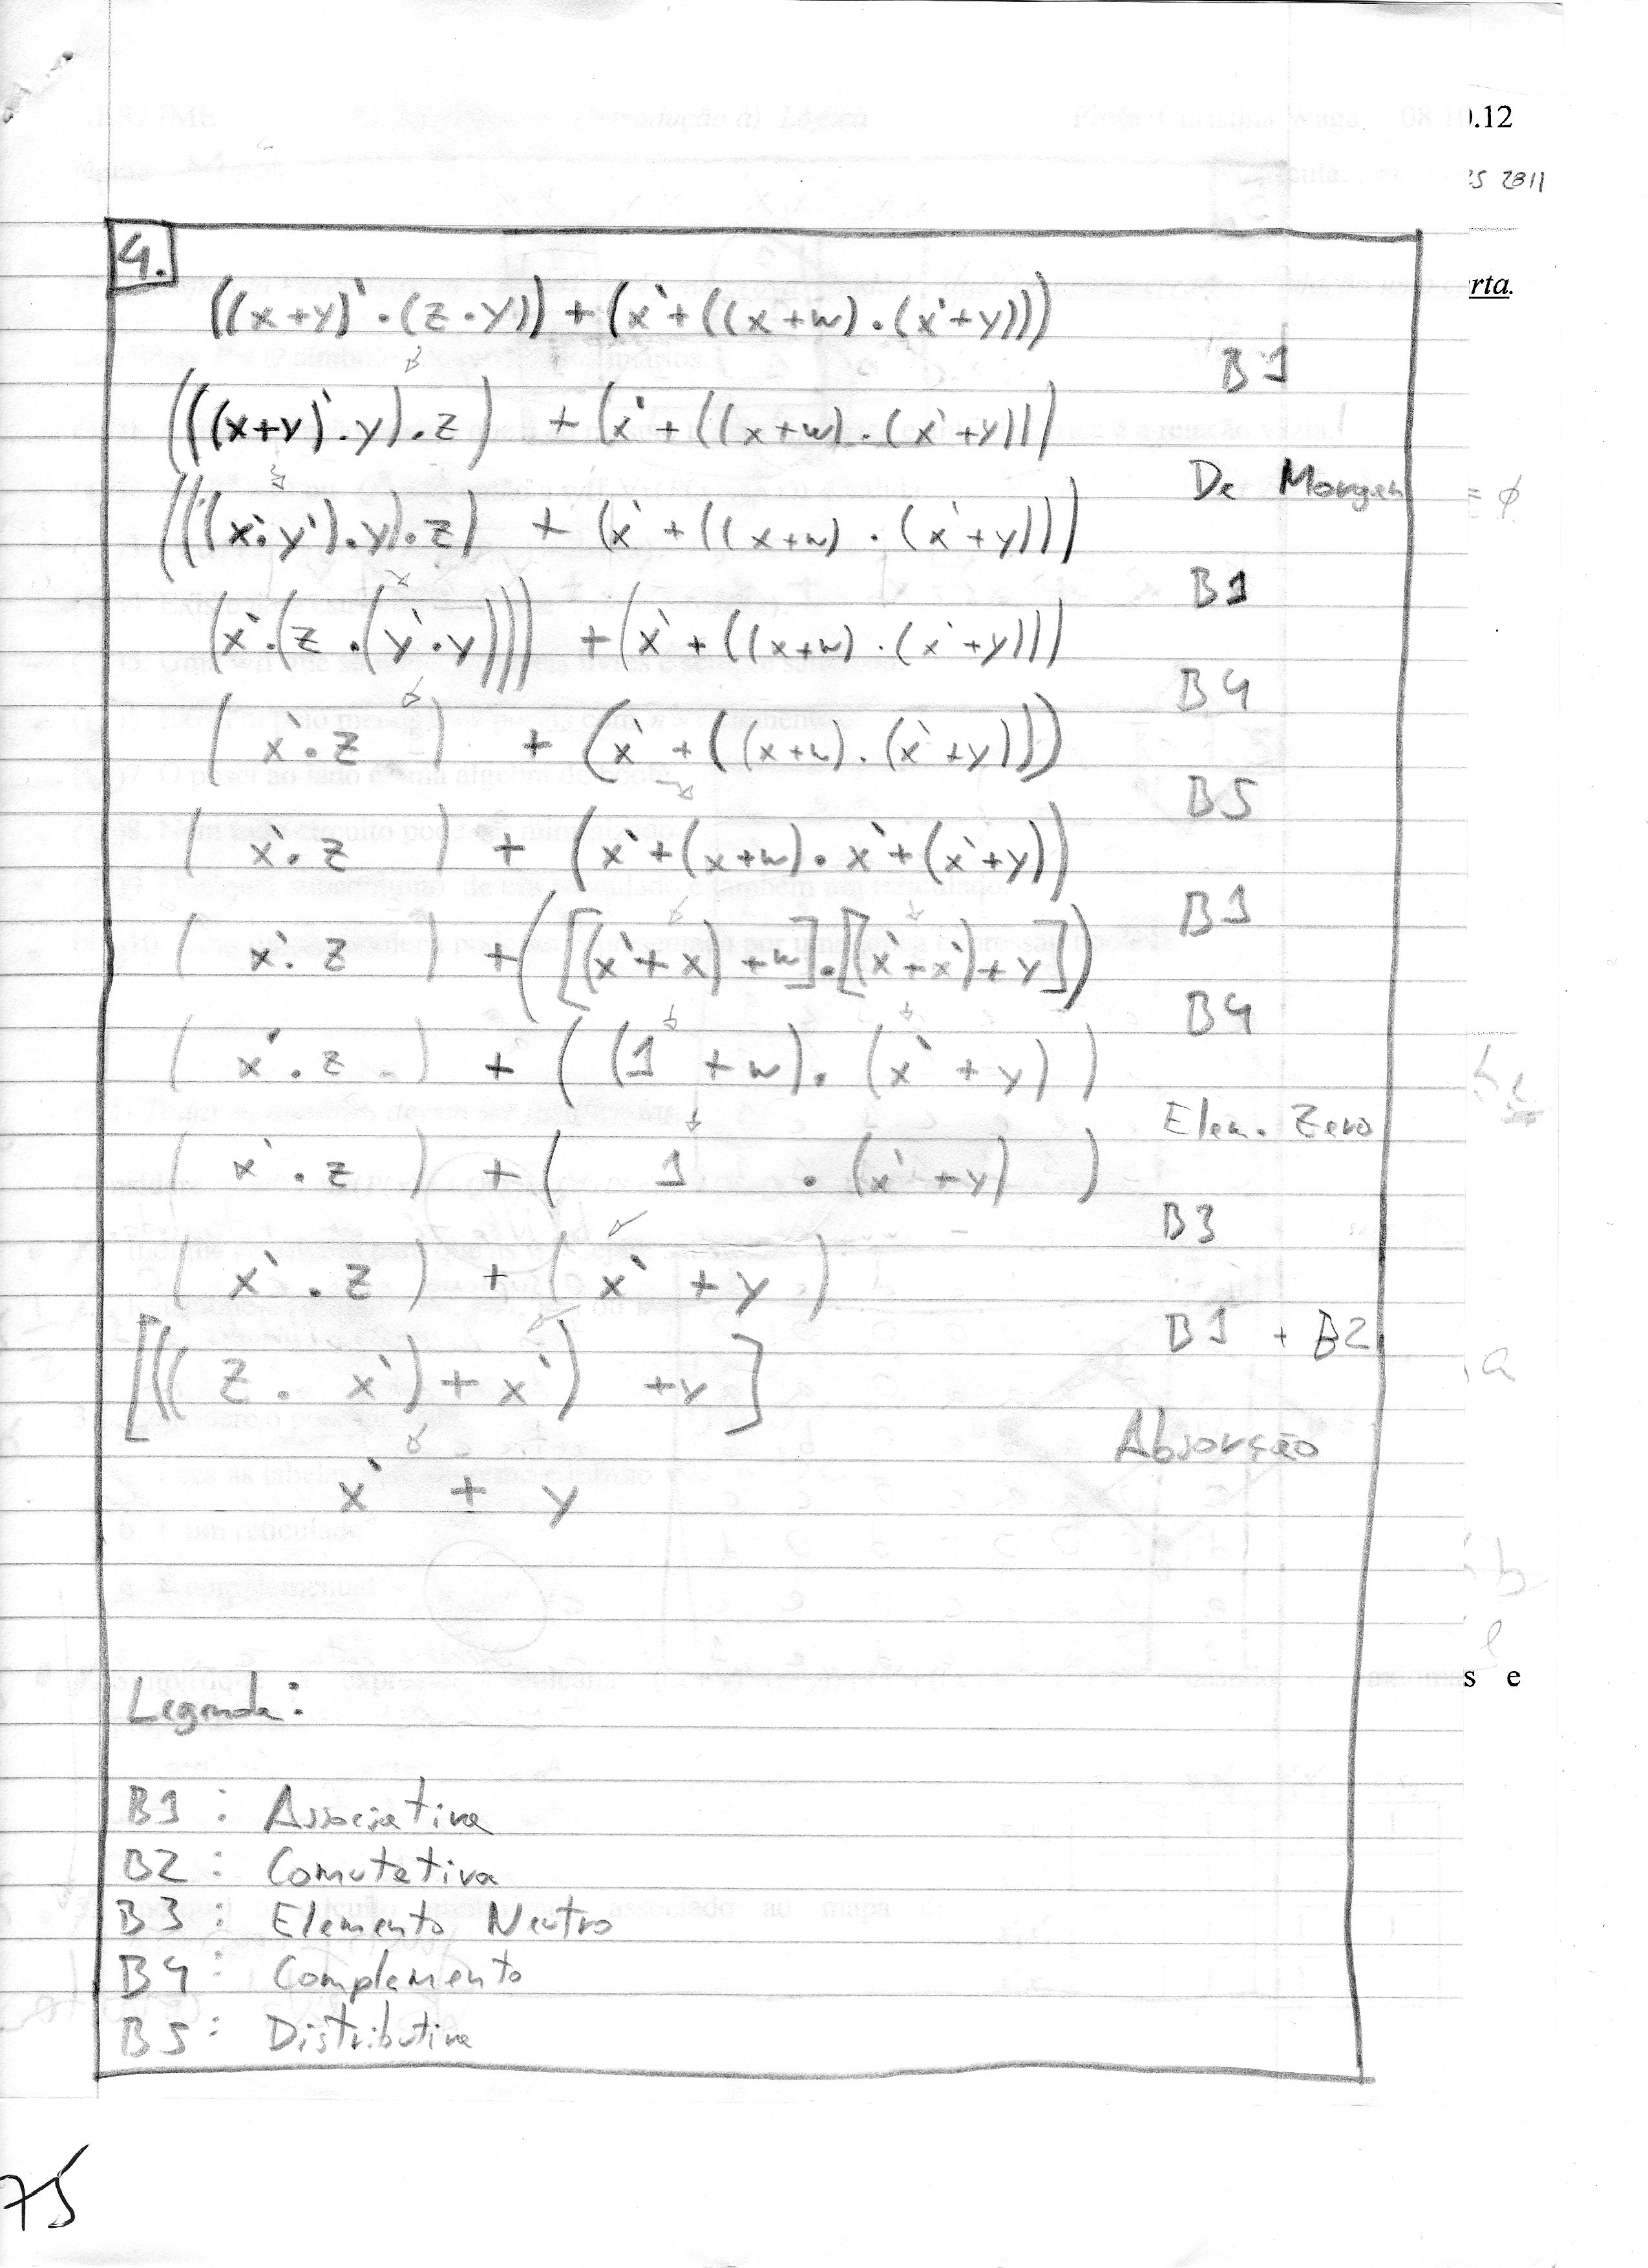 0.12
rs 2011
rta.
4.
((x+y)'·(z·y)) + (x'+((x+w)·(x'+y)))
B1
(((x+y)'·y)·z) + (x'+((x+w)·(x'+y)))
De Morgan
= ∅
(((x'·y')·y)·z) + (x'+((x+w)·(x'+y)))
B1
(x'·(z·(y'·y))) + (x'+((x+w)·(x'+y)))
B4
(x'·z) + (x'+((x+w)·(x'+y)))
B5
(x'·z) + (x'+(x+w)·x'+(x'+y))
B1
(x'·z) + ([(x'+x)+w]·[(x'+x')+y])
B4
(x'·z) + ((1+w)·(x'+y))
Elem. Zero
(x'·z) + (1·(x'+y))
B3
(x'·z) + (x'+y)
B1 + B2
[((z·x')+x')+y]
Absorção
x' + y
a
b
e
s e
Legenda:
B1: Associativa
B2: Comutativa
B3: Elemento Neutro
B4: Complemento
B5: Distributiva
75